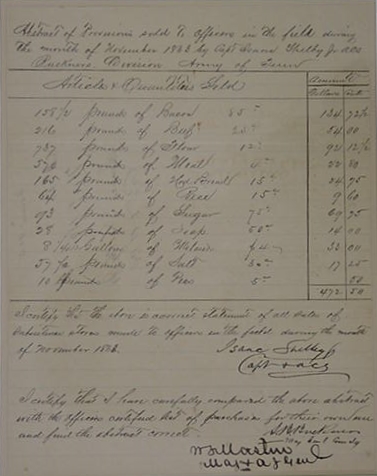 Abstract of Provisions sold to officers in the field during
the month of November 1863 by Capt Isaac Shelby Jr ACS
Buckner's Division Army of Tenn
Articles & Quantities Sold Amount
Dollars Cts
158 1/2 pounds of Bacon 85 134 72 1/2
216 pounds of Beef 25 54 00
737 pounds of Flour 12 92 12 1/2
570 pounds of Meal 4 22 80
165 pounds of Hard Bread 15 24 75
64 pounds of Rice 15 9 60
93 pounds of Sugar 75 69 75
28 pounds of Soap 50 14 00
8 Gallons of $4 32 00
57 1/2 pounds of Salt 30 17 25
10 pounds of Peas 5 50
472 50
I certify that the above is a correct statement of all sales of
Subsistence stores made to officers in the field during the month
of November 1863.
Isaac Shelby Jr
Capt & ACS
I certify that I have carefully compared the above abstract
with the officers certified list of purchases for their own use
and find the abstract correct.
S B Buckner
Maj Genl Comdg
Maj & A J Genl